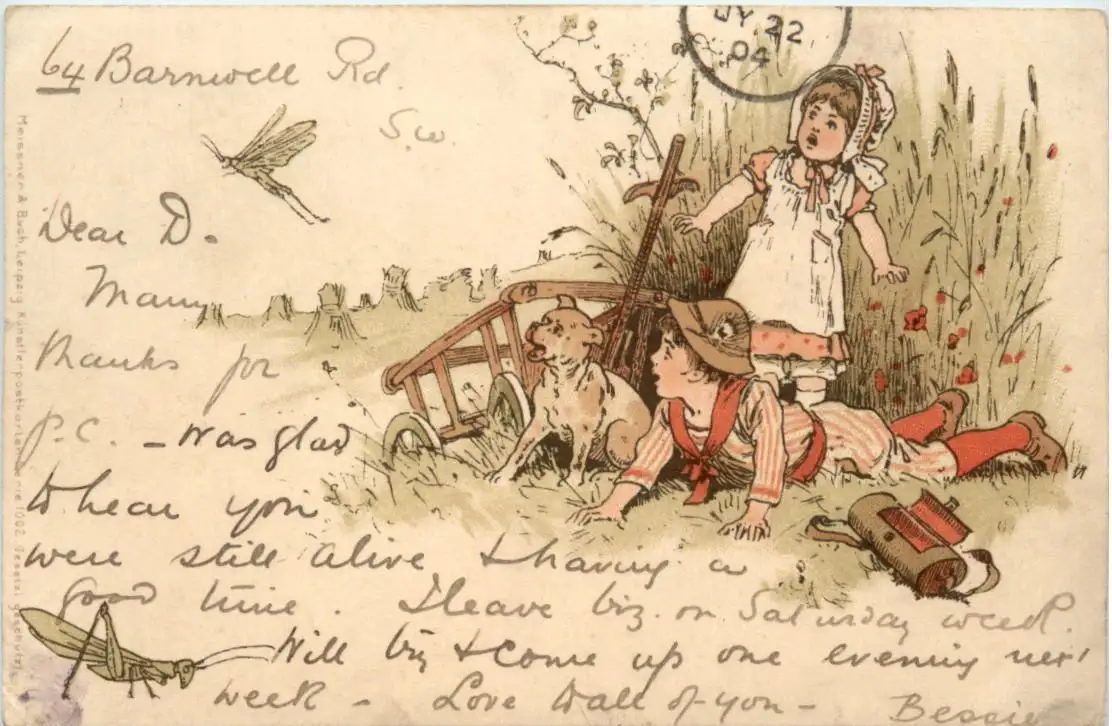 JY 22
04
64 Barnwell Rd.
S.W.
Dear D.
Many
thanks for
P.C. - Was glad
to hear you
were still alive & having a
good time. I leave biz. on Saturday week.
Will try & come up one evening next
week - Love to all of you - Bessie
Meissner & Buch, Leipzig Künstlerpostkarten Serie 1002. Gesetzl. geschützt.